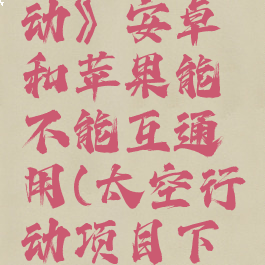 动》安卓
和苹果能
不能互通
用(太空行
动项目下